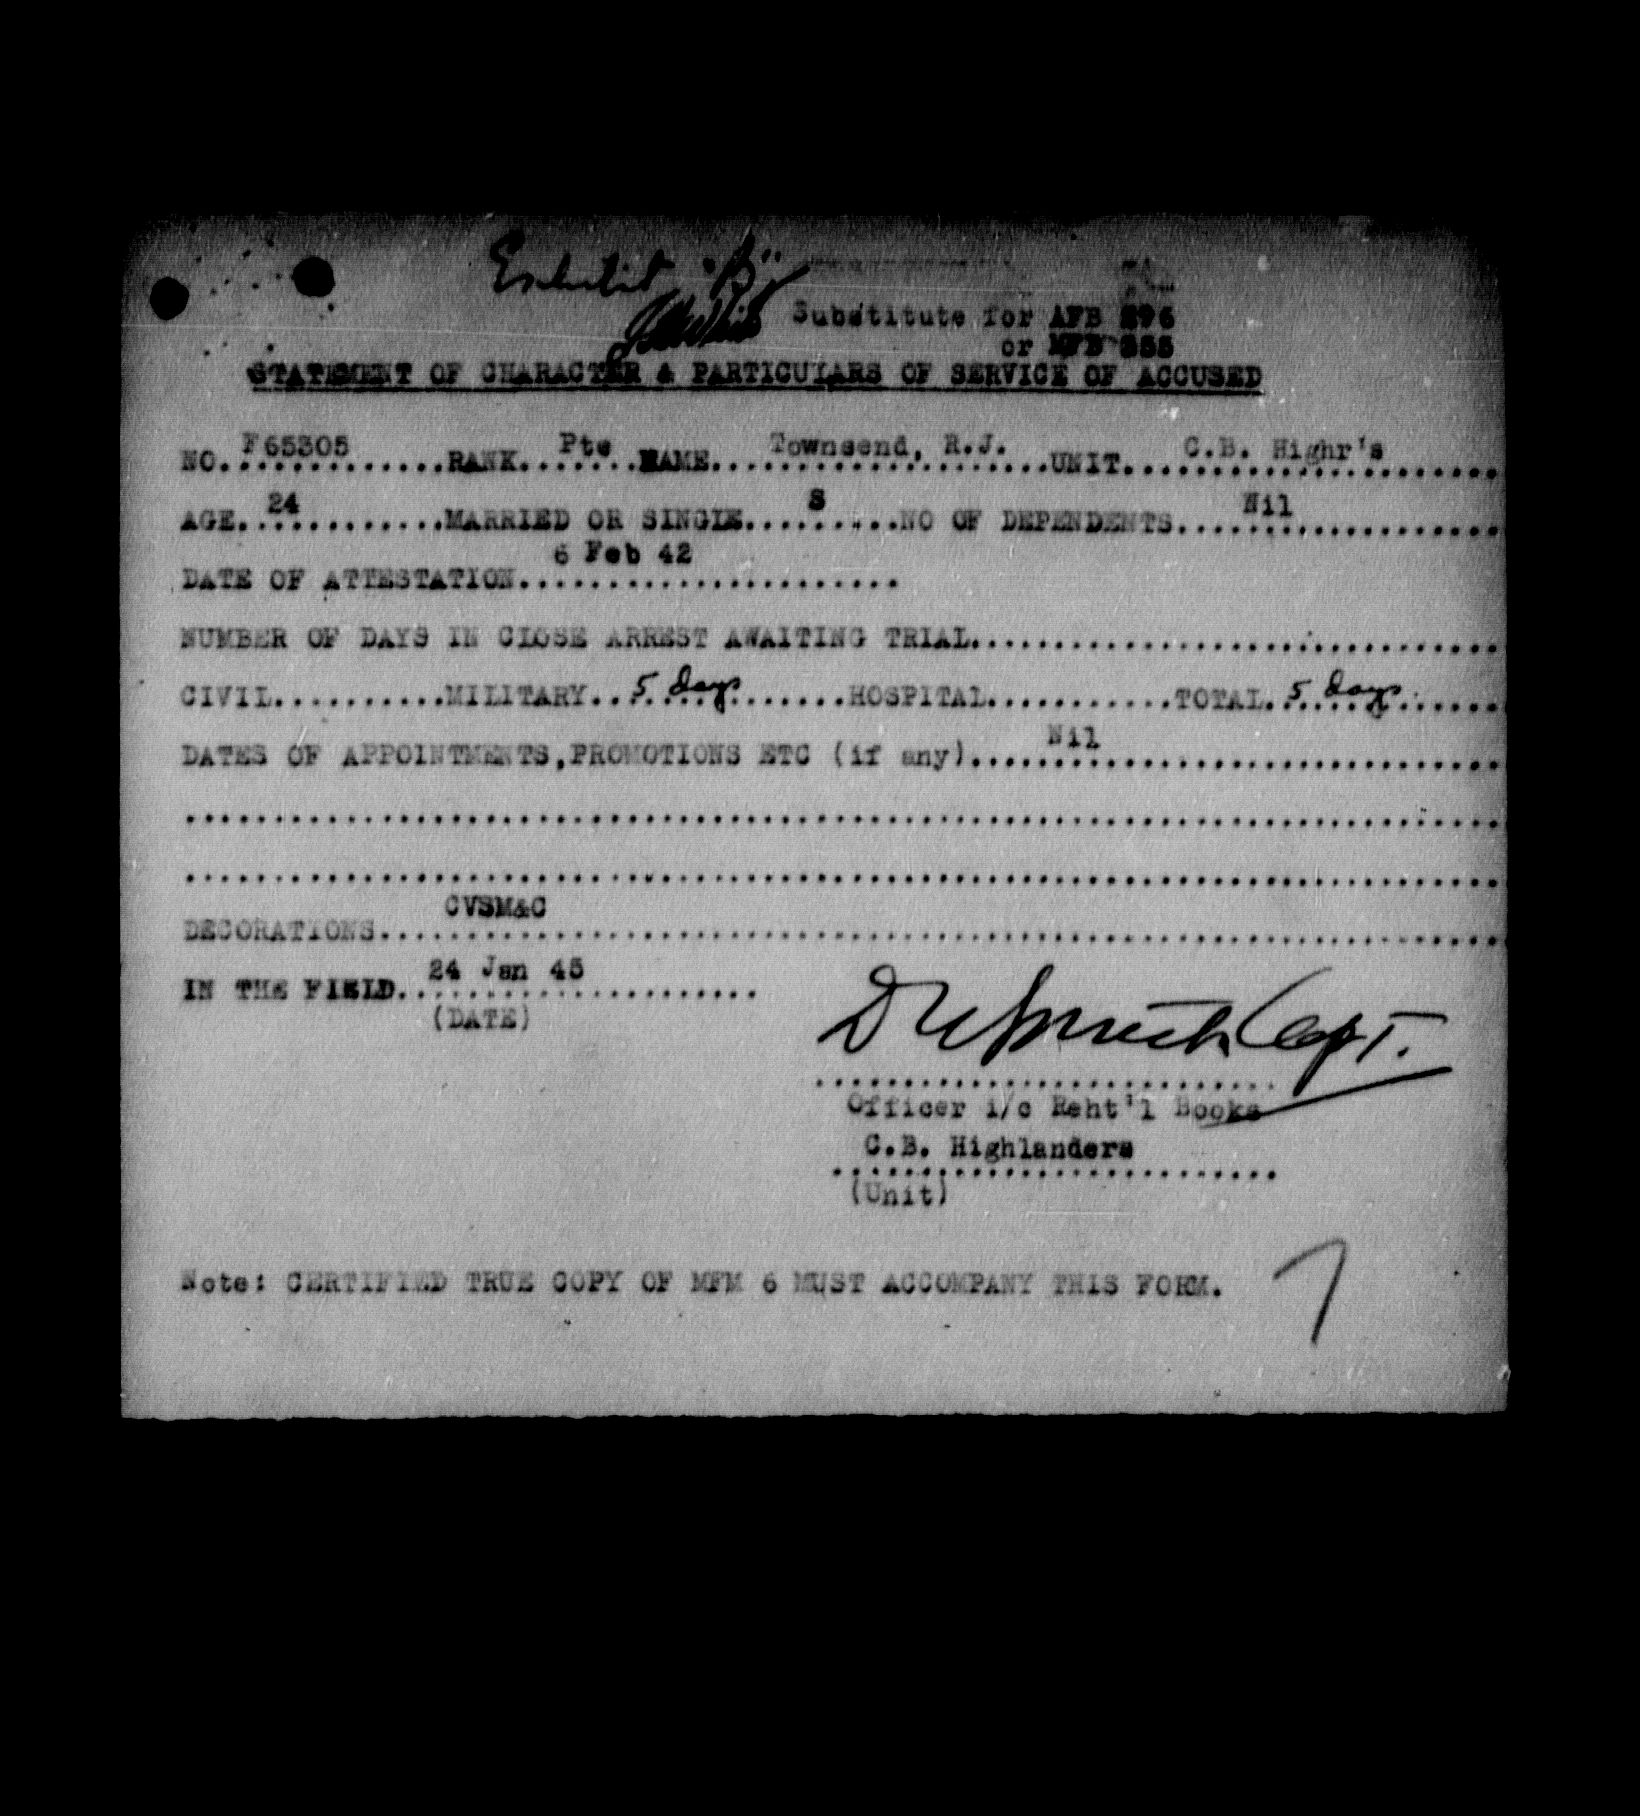 Exhibit "B"
Substitute for AFB 296
or MFB 355
STATEMENT OF CHARACTER & PARTICULARS OF SERVICE OF ACCUSED
NO. F65305 ............RANK. Pte ......NAME. Townsend, R.J. ......UNIT. C.B. Highr's ......
AGE. 24 ............MARRIED OR SINGLE. S .........NO OF DEPENDENTS. Nil ......
DATE OF ATTESTATION. 6 Feb 42 ......
NUMBER OF DAYS IN CLOSE ARREST AWAITING TRIAL..............................
CIVIL..........MILITARY.. 5 days ......HOSPITAL...........TOTAL. 5 days. ......
DATES OF APPOINTMENTS,PROMOTIONS ETC (if any). Nil ......
DECORATIONS. CVSM&C ......
IN THE FIELD. 24 Jan 45 ......
(DATE)
Capt.
Officer i/c Reht'l Books
C.B. Highlanders
(Unit)
Note: CERTIFIED TRUE COPY OF MFM 6 MUST ACCOMPANY THIS FORM.
7